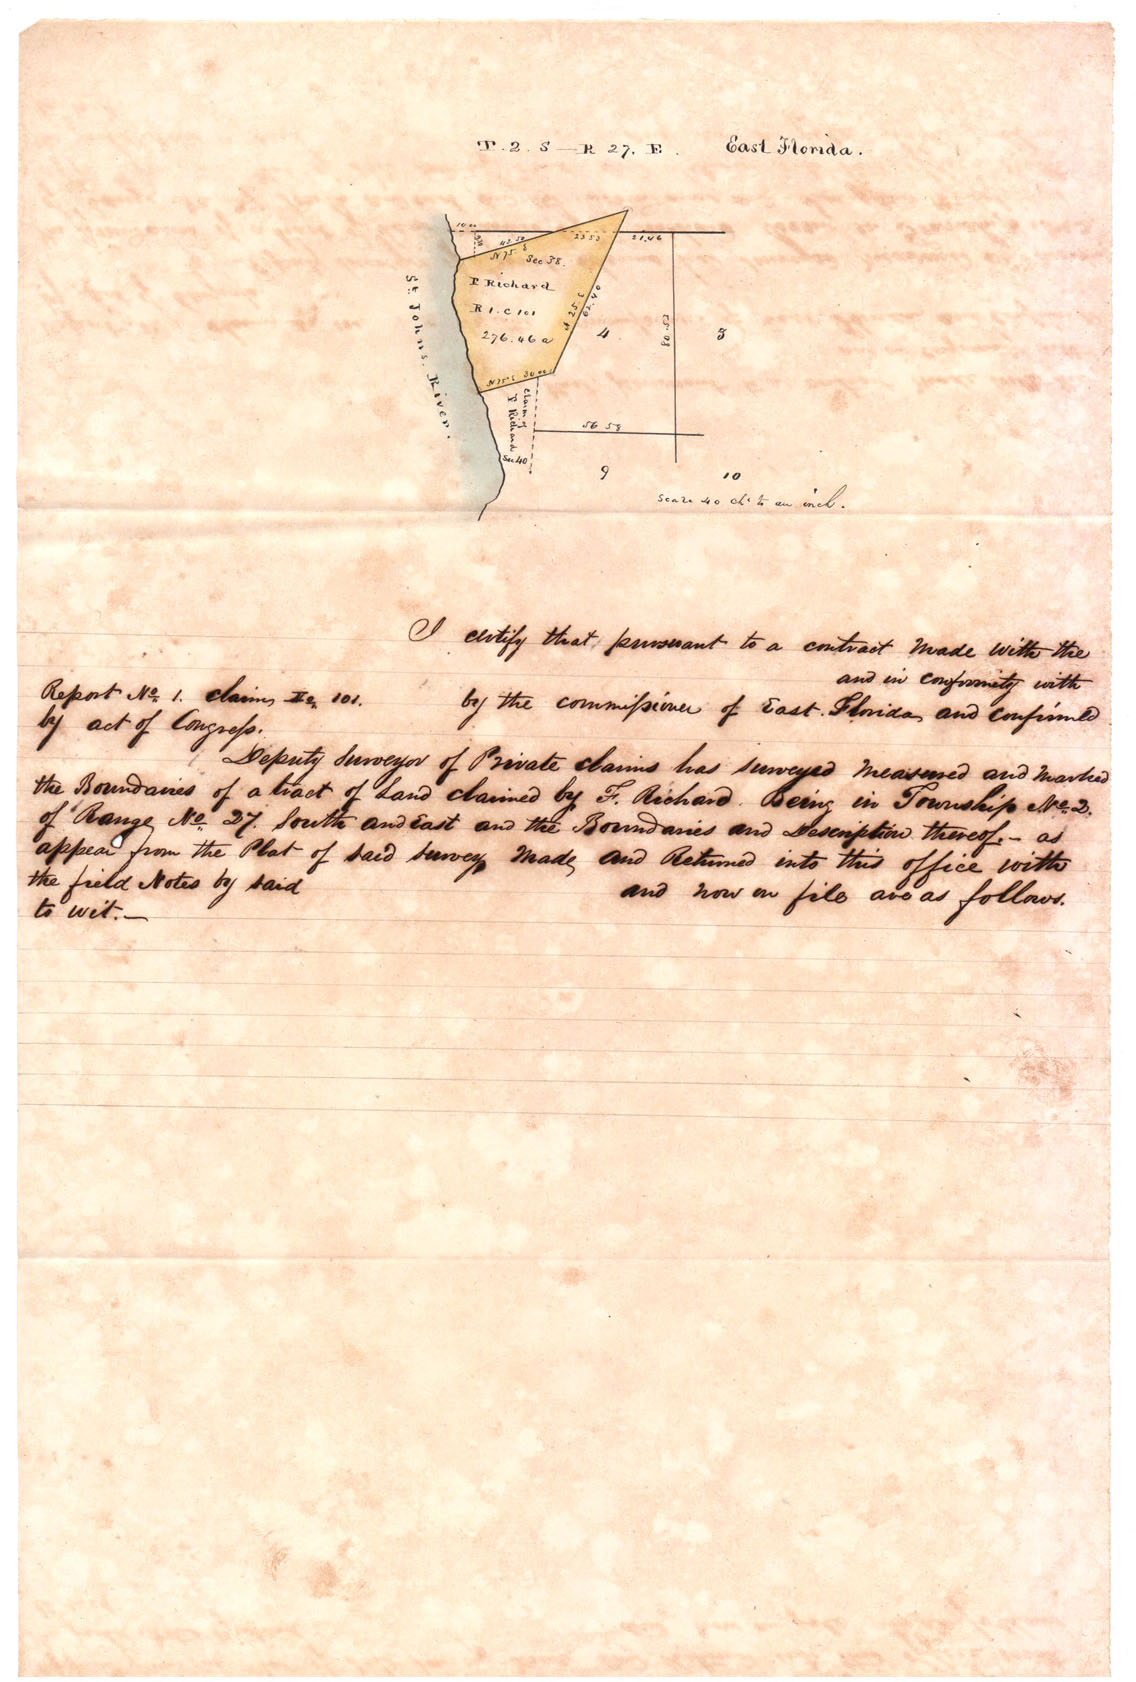 T. 2. S — R 27. E. East Florida.
10.00
43.50
23.53
21.46
N 75 E
Sec 38.
F Richard
R 1. C 101
276.46 a
N 25 E
62.40
4
80.53
3
St. Johns River.
N 75 E 30.00
Claim of
F Richard
Sec 40
56 59
9
10
Scale 40 chs to an inch.
I certify that pursuant to a contract Made with the
and in conformity with
Report No. 1. claim No. 101. by the commissioner of East. Florida and confirmed
by act of Congress.
Deputy Surveyor of Private claims has surveyed Measured and Marked
the Boundaries of a tract of Land claimed by F. Richard. Being in Township No. 2.
of Range No. 27. South and East and the Boundaries and Description thereof. — as
appear from the Plat of said survey Made and Returned into this office with
the field Notes by said and now on file are as follows.
to wit. —